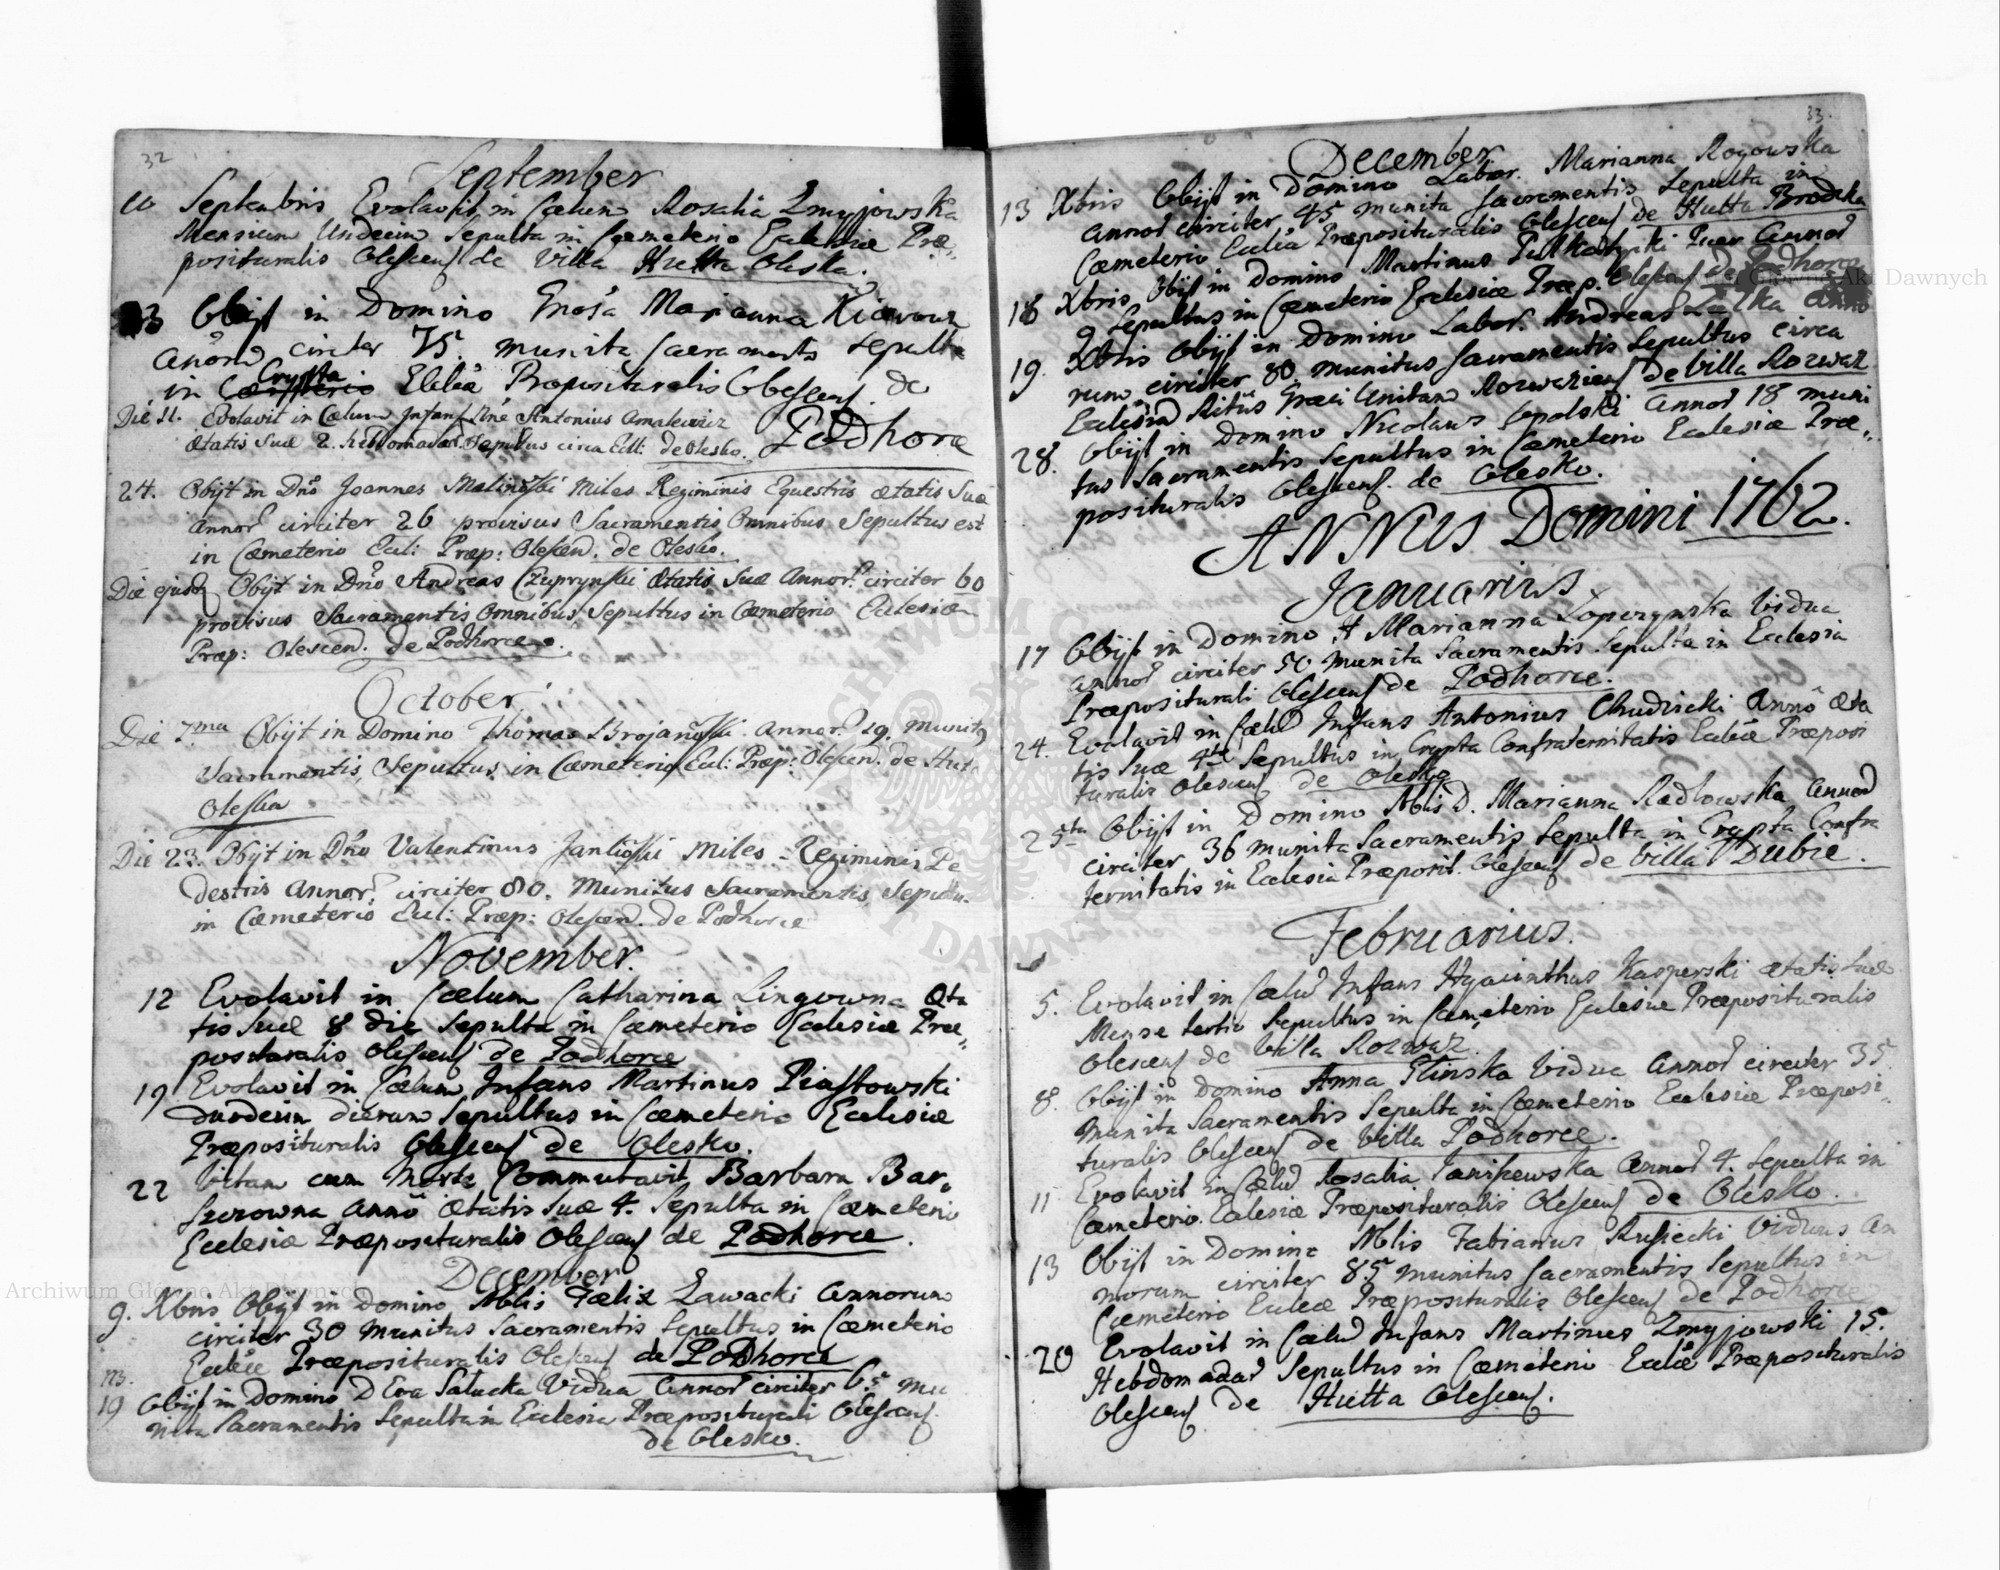 32
September
10 Septembris Evolavit in Cælum Rosalia Zmyjowska
Mensium Undecim Sepulta in Cæmeterio Ecclesiæ Præ„
posituralis Olescens de Villa Hutta Oleska.
13 Obijt in Domino Gnosa Marianna Kiaroux
Anõrum circiter 75. munita Sacramentis Sepulta
in Cæmeterio Crypta Ecclẽa Præposituralis Olescens. de
Podhorce
Die 11. Evolavit in Cælum Infans Nne Antonius Amalewicz
Ætatis Suæ 2. Hebdomadar. Sepultus circa Eccl: de Olesko.
24. Obijt in Dño Joannes Malinoski Miles Regiminis Equestris ætatis Suæ
Annor. circiter 26 provisus Sacramentis Omnibus Sepultus est
in Cæmeterio Eccl: Præp: Olescen. de Olesko.
Die ejusd Obijt in Dño Andreas Czuprynski Ætatis Suæ Annor. circiter 60
provisus Sacramentis Omnibus, Sepultus in Cæmeterio Ecclesiæ
Præp: Olescen. de Podhorce.
October.
Die 7ma Obijt in Domino Thomas Brojanoski Annor. 19. Munitq
Sacramentis, Sepultus in Cæmeterio Eccl: Præp: Olescen. de Hut
Oleska
Die 23. Obijt in Dño Valentinus Jantioski Miles Regiminis Pe
destris Annor. circiter 80. Munitus Sacramentis, Sepultu
in Cæmeterio Eccl: Præp: Olescen. de Podhorce
November.
12 Evolavit in Cælum Catharina Lingowna Æta
tis Suæ 8 die Sepulta in Cæmeterio Ecclesiæ Præ„
posituralis Olescens de Podhorce
19 Evolavit in Cælum Infans Martinus Piastowski
duodecim dierum Sepultus in Cæmeterio Ecclesiæ
Præposituralis Olescens de Olesko.
22 Vitam cum Morte Commutavit Barbara Bar„
szczowna Annũ Ætatis Suæ 4. Sepulta in Cæmeterio
Ecclesiæ Præposituralis Olescens de Podhorce.
December
9. Xbris Obijt in Domino Nblis Fælix Zawacki Annorum
circiter 30 Munitus Sacramentis Sepultus in Cæmeterio
Eccleæ Præposituralis Olescens de Podhorce
19 Obijt in Domino D Eva Salucka Vidua Annor circiter 65 mu
nita Sacramentis Sepulta in Ecclesia Præpositurali Olescens.
de Olesko.
33.
December
13 Xbris Obijt in Domino Labor. Marianna Rogowska
Annor circiter 45 munita Sacramentis Sepulta in
Cæmeterio Eccleã Præposituralis Olescens de Hutta Brodzka
18 Xbris Obijt in Domino Martinus Puer Annor
9 Sepultus in Cæmeterio Ecclesiæ Præp. Olescens de Podhorce
19. Xbris Obijt in Domino Labor. Andreas Anno
rum circiter 80 munitus Sacramentis Sepultus circa
Ecclesia Ritus Græci Unitam Rozwaziens de Villa Rozwaz
28. Obijt in Domino Nicolaus Opolski Annor 18 muni
tus Sacramentis Sepultus in Cæmeterio Ecclesiæ Præ„
posituralis Olescens. de Olesko.
ANNUS Domini 1762.
Januarius
17 Obijt in Domino Marianna Lopczynska Vidua
Annor circiter 50 Munita Sacramentis Sepulta in Ecclesia
Præpositurali Olescens de Podhorce.
24. Evolavit in Cælu Infans Antonius Chudzicki Anno Æta
tis Suæ 4to Sepultus in Crypta Confraternitatis Eccleæ Præposi
turalis Olescens de Olesko
25ta Obijt in Domino Nblis D. Marianna Radlowska Annor
circiter 36 munita Sacramentis Sepulta in Crypta Confra
ternitatis in Ecclesia Præposit. Olescens de Villa Dubie.
Februarius.
5. Evolavit in Cælu Infans Hyacinthus Kasperski ætatis Suæ
Mense tertio Sepultus in Cæmeterio Ecclesiæ Præposituralis
Olescens de Villa Rozwaz.
8. Obijt in Domino Anna Glinska Vidua Annor circiter 35
Munita Sacramentis Sepulta in Cæmeterio Ecclesiæ Præposi„
turalis Olescens de Villa Podhorce.
11 Evolavit in Cælu Rosalia Janiszewska Annor 4. Sepulta in
Cæmeterio Ecclesiæ Præposituralis Olescens de Olesko.
13 Obijt in Domino Nblis Fabianus Rusiecki Viduus An
norum circiter 85 munitus Sacramentis Sepultus in
Cæmeterio Eccleæ Præposituralis Olescens de Podhorce
20 Evolavit in Cælu Infans Martinus Zmyjowski 15.
Hebdomadar Sepultus in Cæmeterio Eccleæ Præposituralis
Olescens de Hutta Olescens.
Archiwum Główne Akt Dawnych